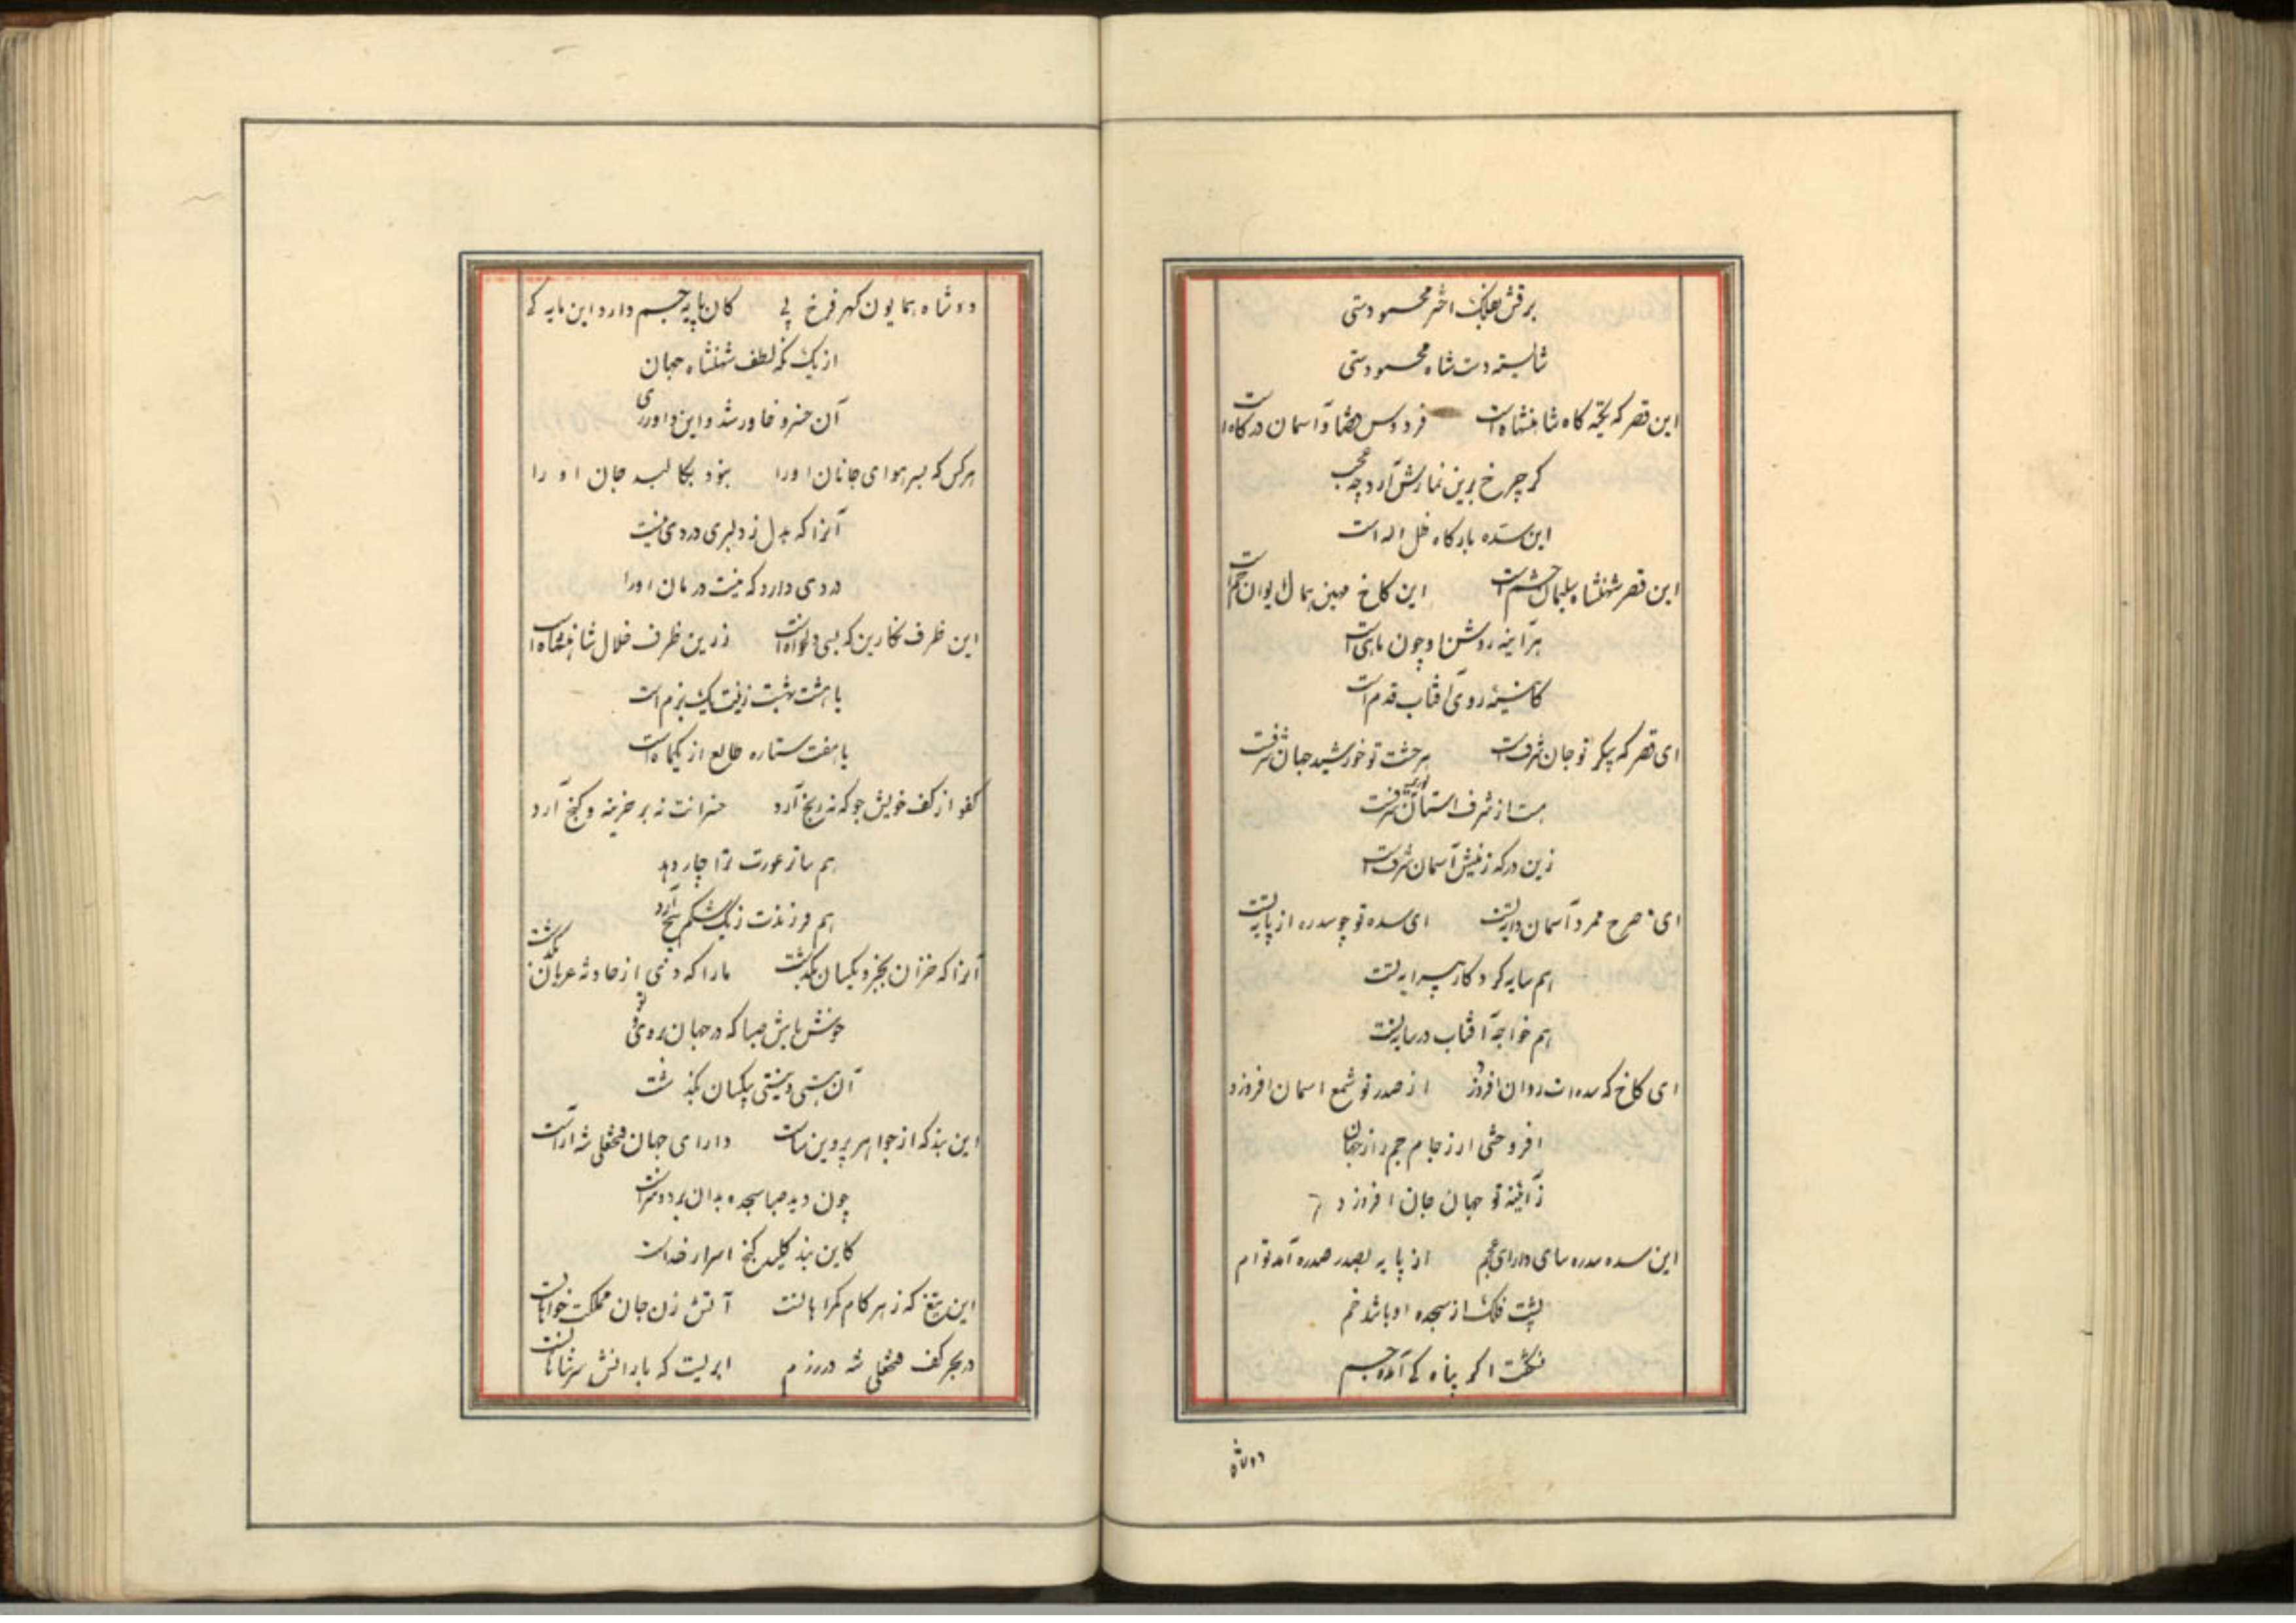 برقش بفلک اختر محسودستی
شایسته دست شاه محسودستی
این قصر که تختگاه شاهنشاه است فردوس فضا و آسمان درگاه است
گر چرخ برین نمازش آرد چه عجب
این سده بارگاه ظل اله است
این قصر شهنشاه سلیمان حشم است این کاخ مهین همال ایوان جم است
هر آینه روشن او چون ماهی است
کآئینه روی آفتاب قدم است
ای قصر که پیکر تو جان شرفست هر خشت تو خورشید جهان شرفست
هست از شرف آستان تو بر شرفت
زین در که زمینش آسمان شرفست
ای صرح ممرد آسمان دایه تست ای سده تو چو سدره از پایه تست
هم سایه کردگار پیرایه تست
هم خواجه آفتاب در سایه تست
ای کاخ که سده ات روان افروزد از صدر تو شمع آسمان افروزد
افروختی ار ز جام جم راز جهان
ز آئینه تو جهان جان افروزد
این سده سدره سای دارای عجم از پایه بصدر سدره آمد توام
پشت فلک از سجده او باشد خم
نگشت اگر پناه کی آمد جم
دو شاه
دو شاه همایون گهر فرخ پی کان پایه جم دارد این مایه کی
از یک نگه لطف شهنشاه جهان
آن خسرو خاور شد و این داور ری
هر کس که بسر هوای جانان او را نبود بکالبد جان او را
آنرا که بدل ز دلبری دردی نیست
دردی دارد که نیست درمان او را
این ظرف نگارین که بسی دلخواه است زرین ظرف خلال شاهنشاه است
یا هشت بهشت زینت یک بزم است
یا هفت ستاره طالع از یکماه است
کفو از کف خویش جو که نه رنج آرد خسرانت نه بر خزینه و گنج آرد
هم ساتر عورت ترا چار دهد
هم فرزندت ز یک شکم پنج آرد
آنرا که خزان بخز و یکسان بگذشت ما را که دی از حادثه عریان بگذشت
خوش باش صبا که در جهان بروی تو
آن هستی و نیستی یکسان بگذشت
این بند که از جواهر پروین ساست دارای جهان فتحعلی شه آراست
چون دید صبا سجده بدان برد و سراست
کاین بند کلید گنج اسرار خداست
این تیغ که زهر کام گمراهانست آتش زن جان مملکت خواهانست
در بحر کف فتحعلی شه در رزم ابریست که بارانش سر شاهانست